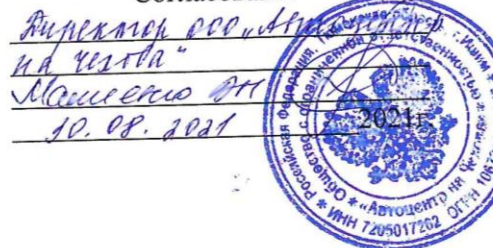 Директор ООО „Автоцентр
на Чехова"
10.08.2021
2021г
Российская Федерация, Тюменская область, г.Ишим
Общество с ограниченной ответственностью
«Автоцентр на Чехова»
ИНН 7205017262 ОГРН